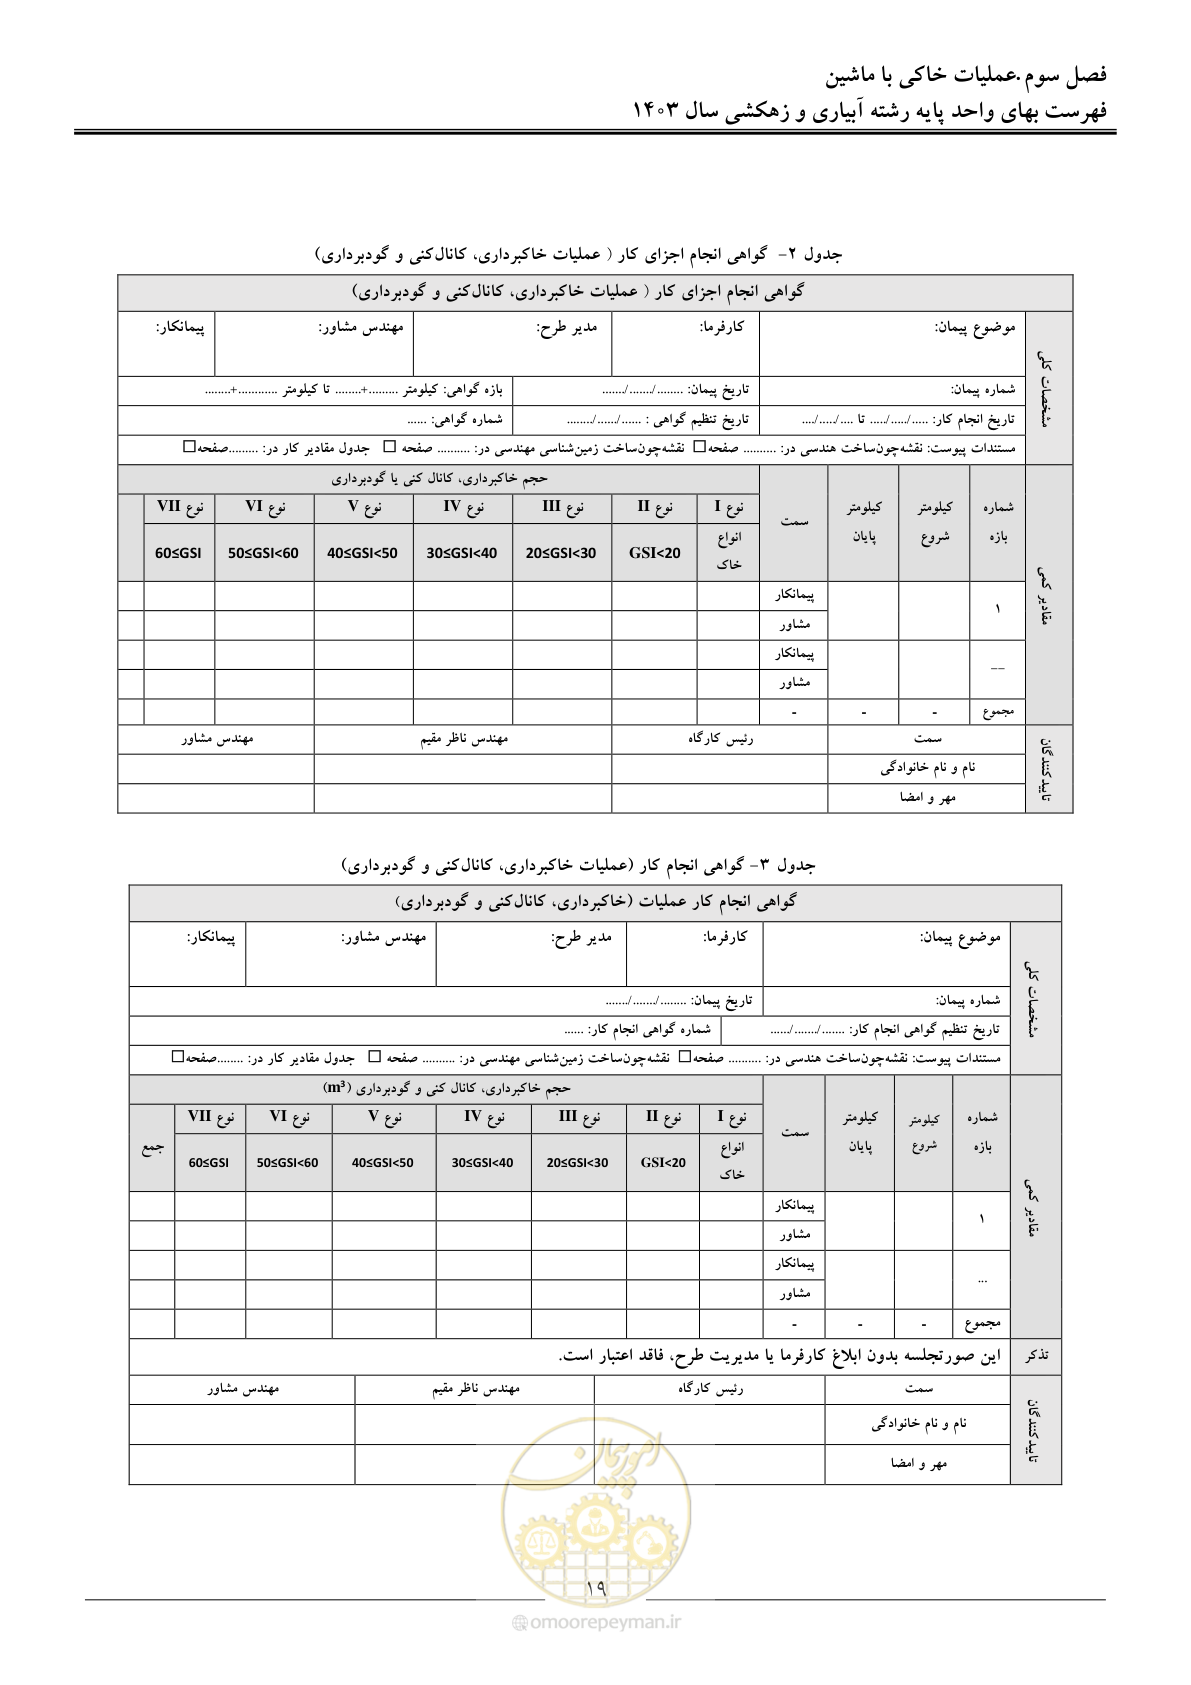 فصل سوم.عملیات خاکی با ماشین
فهرست بهای واحد پایه رشته آبیاری و زهکشی سال ۱۴۰۳
جدول ۲- گواهی انجام اجزای کار ( عملیات خاکبرداری، کانال‌کنی و گودبرداری)
گواهی انجام اجزای کار ( عملیات خاکبرداری، کانال‌کنی و گودبرداری)
مشخصات کلی
موضوع پیمان: کارفرما: مدیر طرح: مهندس مشاور: پیمانکار:
شماره پیمان: تاریخ پیمان: ......../......./....... بازه گواهی: کیلومتر .........+........ تا کیلومتر ............+........
تاریخ انجام کار: ...../...../..... تا ..../...../.... تاریخ تنظیم گواهی : ....../....../........ شماره گواهی: ......
مستندات پیوست: نقشه‌چون‌ساخت هندسی در: .......... صفحه□ نقشه‌چون‌ساخت زمین‌شناسی مهندسی در: .......... صفحه □ جدول مقادیر کار در: .........صفحه□
مقادیر کمی
شماره بازه کیلومتر شروع کیلومتر پایان سمت حجم خاکبرداری، کانال کنی یا گودبرداری
نوع I نوع II نوع III نوع IV نوع V نوع VI نوع VII
انواع خاک GSI<20 20≤GSI<30 30≤GSI<40 40≤GSI<50 50≤GSI<60 60≤GSI
۱ پیمانکار
مشاور
__ پیمانکار
مشاور
مجموع - - -
تاییدکنندگان
سمت رئیس کارگاه مهندس ناظر مقیم مهندس مشاور
نام و نام خانوادگی
مهر و امضا
جدول ۳- گواهی انجام کار (عملیات خاکبرداری، کانال‌کنی و گودبرداری)
گواهی انجام کار عملیات (خاکبرداری، کانال‌کنی و گودبرداری)
مشخصات کلی
موضوع پیمان: کارفرما: مدیر طرح: مهندس مشاور: پیمانکار:
شماره پیمان: تاریخ پیمان: ......../......./.......
تاریخ تنظیم گواهی انجام کار: ......./......./...... شماره گواهی انجام کار: ......
مستندات پیوست: نقشه‌چون‌ساخت هندسی در: .......... صفحه□ نقشه‌چون‌ساخت زمین‌شناسی مهندسی در: .......... صفحه □ جدول مقادیر کار در: ........صفحه□
مقادیر کمی
شماره بازه کیلومتر شروع کیلومتر پایان سمت حجم خاکبرداری، کانال کنی و گودبرداری (m³)
نوع I نوع II نوع III نوع IV نوع V نوع VI نوع VII جمع
انواع خاک GSI<20 20≤GSI<30 30≤GSI<40 40≤GSI<50 50≤GSI<60 60≤GSI
۱ پیمانکار
مشاور
... پیمانکار
مشاور
مجموع - - -
تذکر این صورتجلسه بدون ابلاغ کارفرما یا مدیریت طرح، فاقد اعتبار است.
تاییدکنندگان
سمت رئیس کارگاه مهندس ناظر مقیم مهندس مشاور
نام و نام خانوادگی
مهر و امضا
امور پیمان
۱۹
omoorepeyman.ir